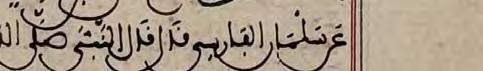 عَن سَلْمَان الفَارِسِي قَال قَال النَّبِيّ صَلَّى